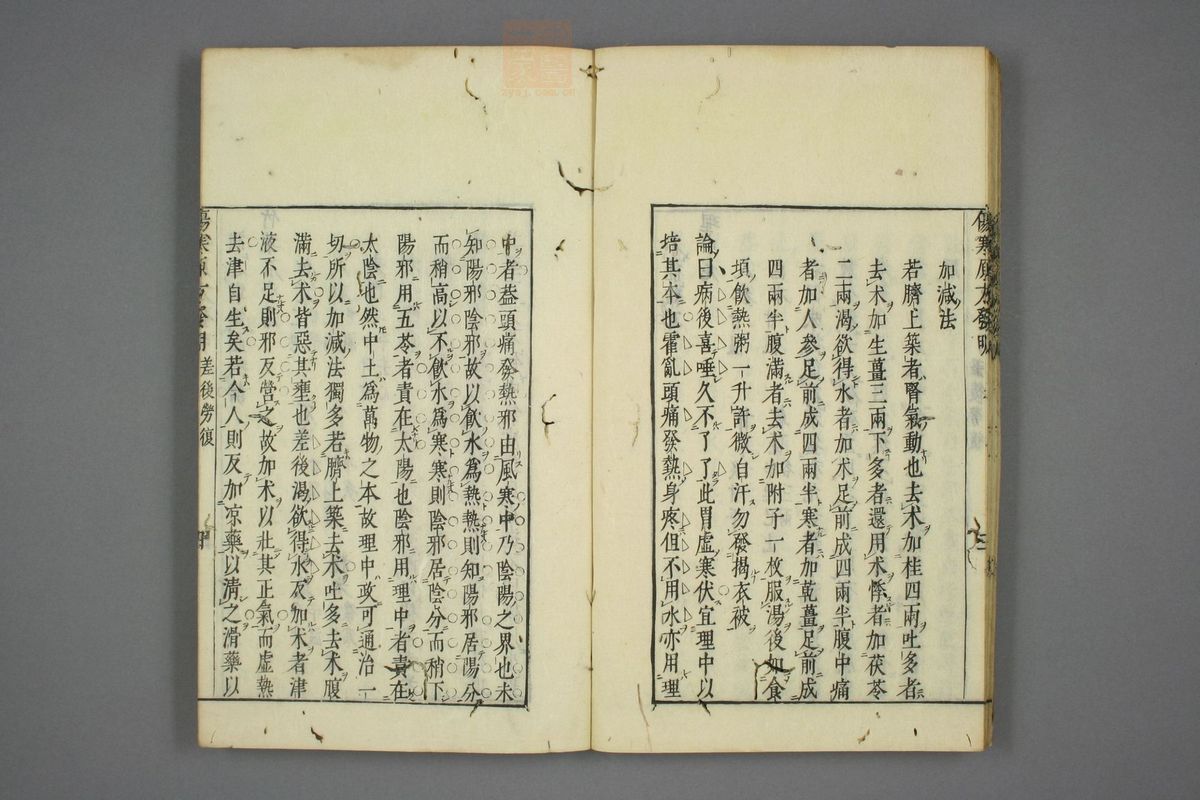 傷寒原方發明
加減法
若臍上築者腎氣動也去术加桂四兩吐多者
去术加生薑三兩下多者還用术悸者加茯苓
二兩渴欲得水者加术足前成四兩半腹中痛
者加人參足前成四兩半寒者加乾薑足前成
四兩半腹滿者去术加附子一枚服湯後如食
頃飲熱粥一升許微自汗勿發揭衣被
論曰病後喜唾久不了了此胃虛寒伏宜理中以
培其本也霍亂頭痛發熱身疼但不用水亦用理
中者葢頭痛發熱邪由風寒中乃陰陽之界也未
知陽邪陰邪故以飲水爲熱熱則知陽邪居陽分
而稍高以不飲水爲寒寒則陰邪居陰分而稍下
陽邪用五苓者責在太陽也陰邪用理中者責在
太陰也然中土爲萬物之本故理中政可通治一
切所以加減法獨多若臍上築去术吐多去术腹
滿去术皆惡其壅也差後渴欲得水反加术者津
液不足則邪反營之故加术以壯其正氣而虛熱
去津自生矣若今人則反加凉藥以淸之滑藥以
傷寒原方發明 差後勞復
zysj.com.cn